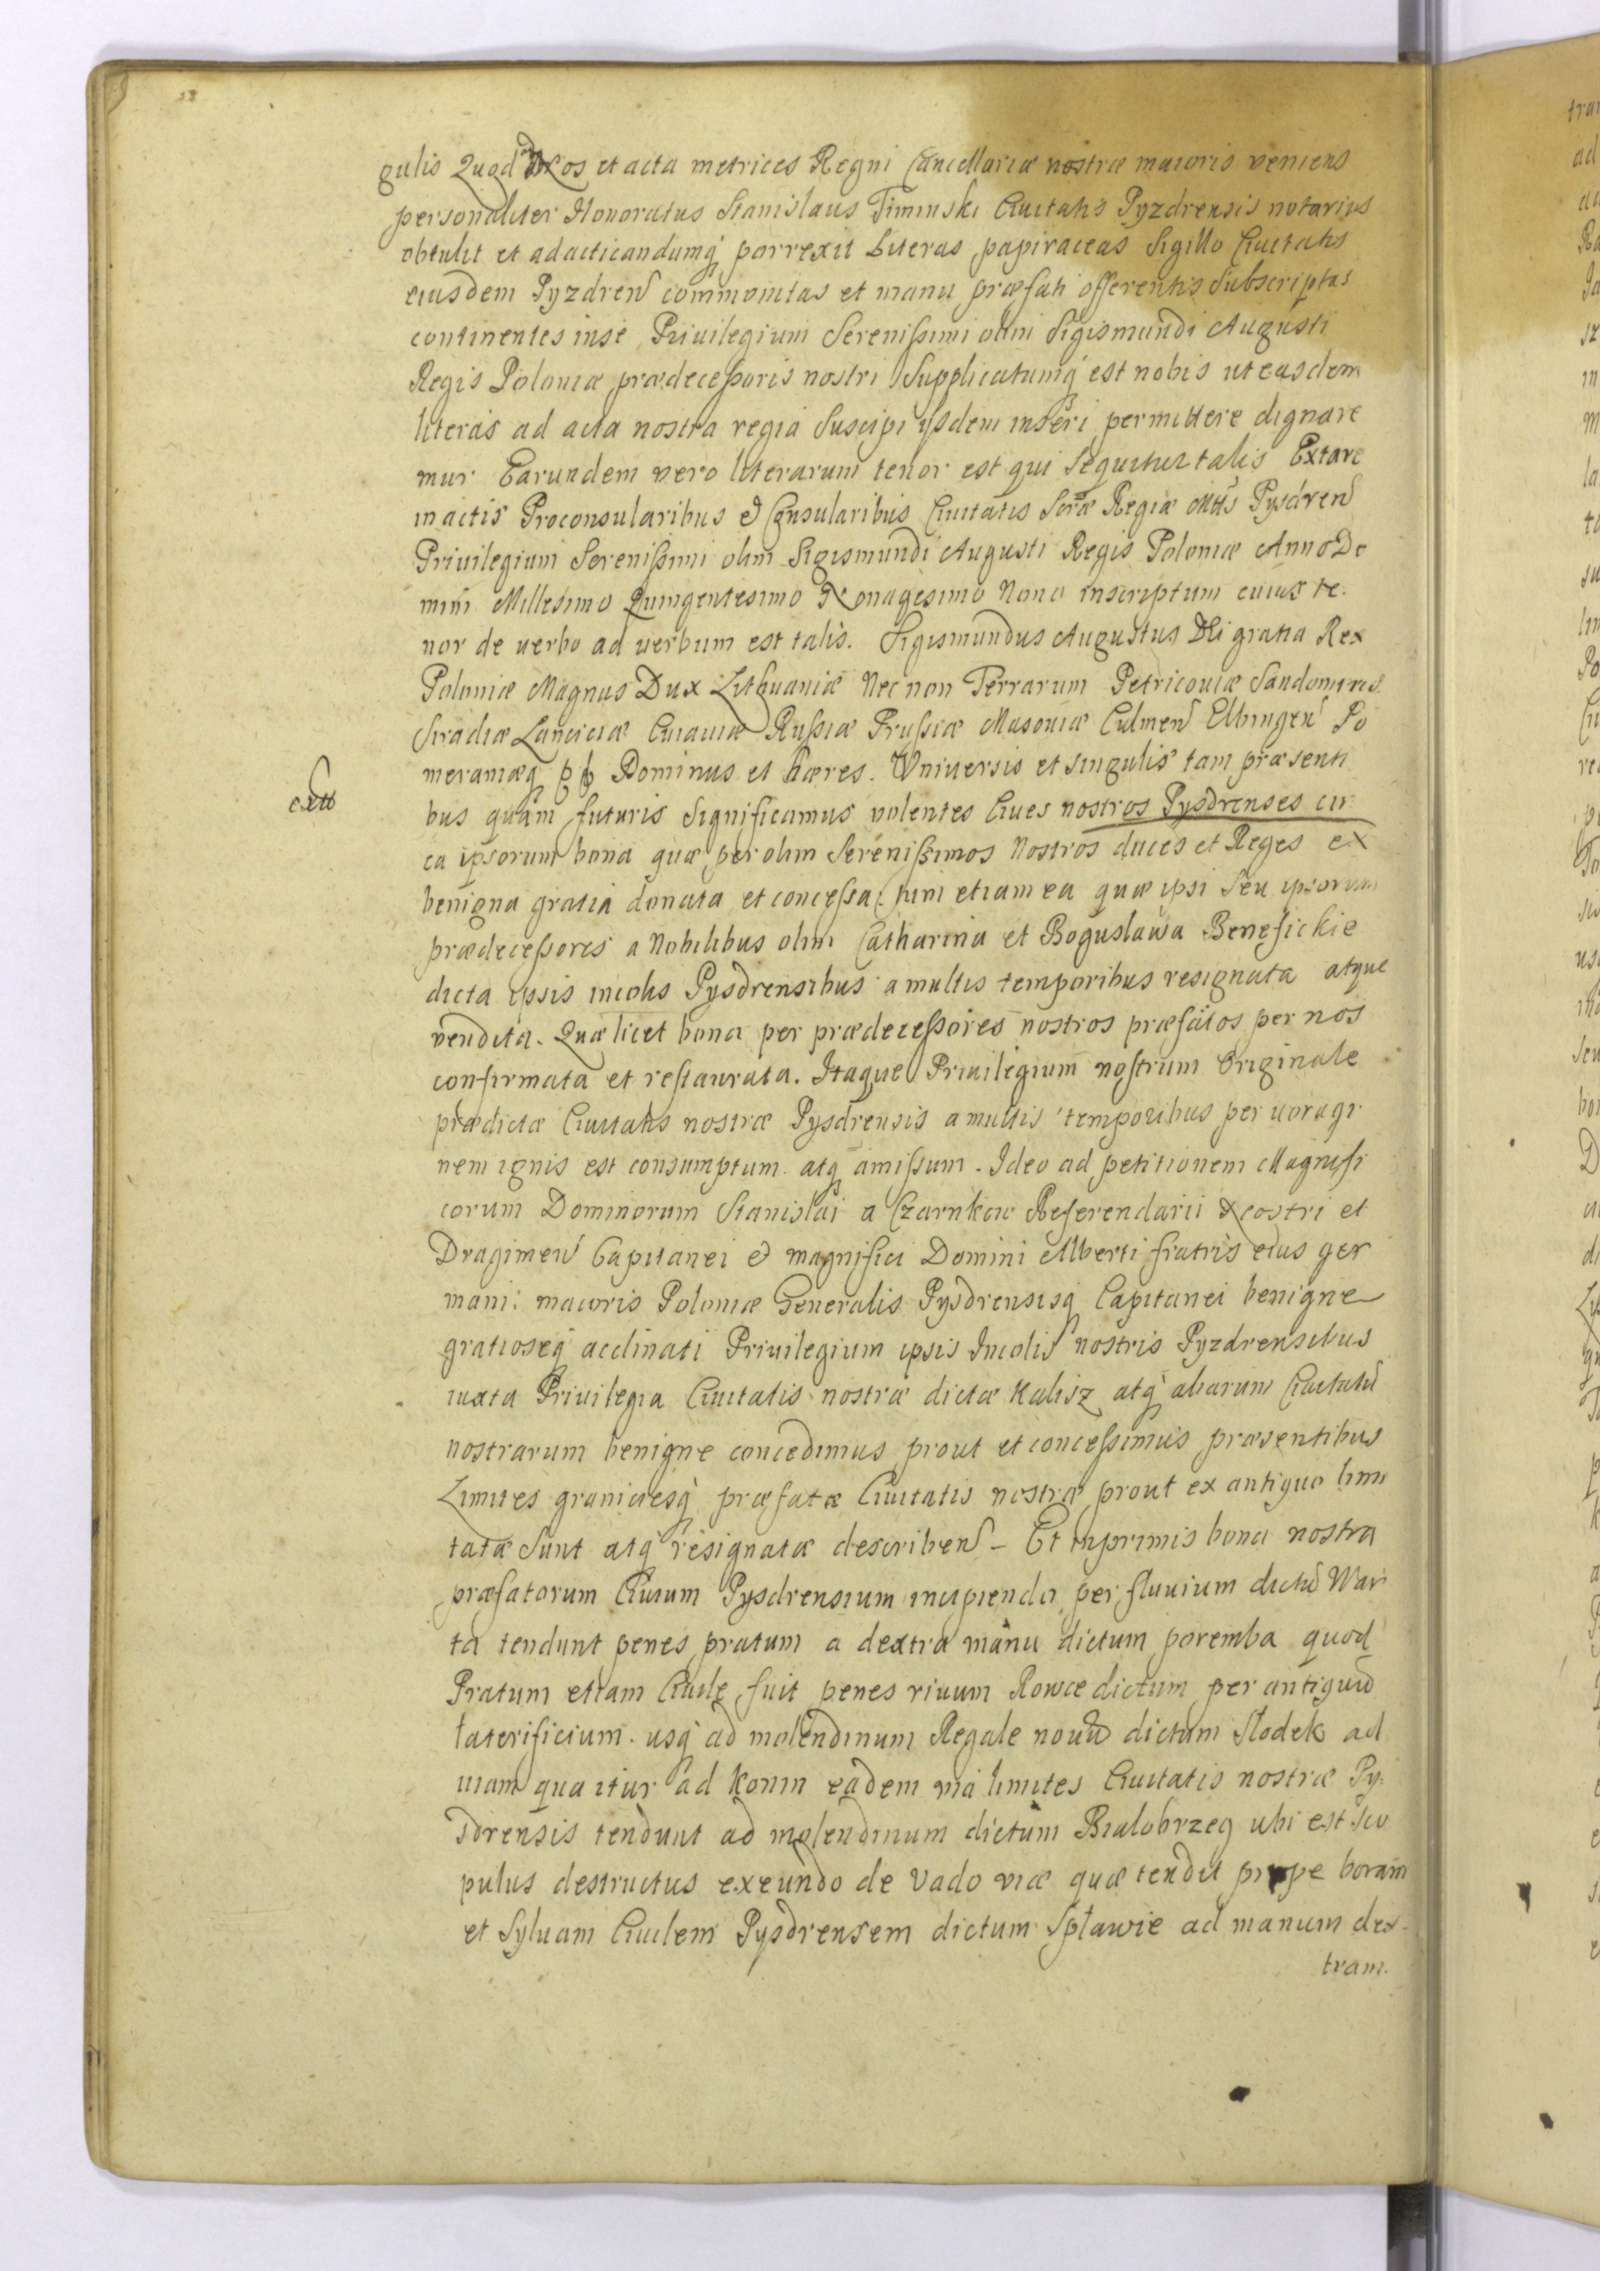 gulis Quod Nos et acta metrices Regni Cancellariæ nostræ maioris veniens
personaliter Honoratus Stanislaus Timinski Ciuitatis Pyzdrensis notarius
obtulit et ad acticandumq porrexit Literas papiraceas Sigillo Ciuitatis
eiusdem Pyzdren communitas et manu præfati offerentis Subscriptas
continentes in se Priuilegium Serenissimi olim Sigismundi Augusti
Regis Poloniæ prædecessoris nostri Supplicatumq est nobis ut easdem
literas ad acta nostra regia Suscipi ysdem inseri permittere dignare
mur Earundem vero literarum tenor est qui Sequitur talis Extare
in actis Proconsularibus & Consularibus Ciuitatis Scræ Regiæ Mtis Pysdren
Priuilegium Serenissimi olim Sigismundi Augusti Regis Poloniæ Anno Do
mini Millesimo Quingentesimo Nonagesimo Nono inscriptum cuius te.
nor de uerbo ad uerbum est talis. Sigismundus Augustus Dei gratia Rex
Poloniæ Magnus Dux Lithuaniæ Nec non Terrarum Petricouiæ Sandomiries
Siradiæ Lanciciæ Cuiauiæ Russiæ Prussiæ Masouiæ Culmen Elbingen Po
meraniæq Dominus et hæres. Vniuersis et singulis tam præsenti
bus quam futuris Significamus volentes Ciues nostros Pysdrenses cir
ca ipsorum bona quæ per olim Serenissimos Nostros duces et Reges ex
benigna gratia donata et concessa tum etiam ea quæ ipsi Seu ipsorum
prædecessores a Nobilibus olim Catharina et Boguslawa Benesickie
dicta ipsis incolis Pysdrensibus a multis temporibus resignata atque
vendita. Quæ licet bona per prædecessores nostros præfatos per nos
confirmata et restaurata. Itaque Priuilegium nostrum Originale
prædictæ Ciuitatis nostræ Pysdrensis a multis temporibus per uoragi
nem ignis est consumptum atq amissum. Ideo ad petitionem Magnifi
corum Dominorum Stanislai a Czarnkow Referendarii Nostri et
Dragimen Capitanei & magnifici Domini Alberti fratris eius ger
mani: maioris Poloniæ Generalis Pysdrensisq Capitanei benigne
gratioseq acclinati Priuilegium ipsis Incolis nostris Pyzdrensibus
iuxta Priuilegia Ciuitatis nostræ dictæ Kalisz atq aliarum Ciuitatu
nostrarum benigne concedimus prout et concessimus præsentibus
Limites graniciesq præfatæ Ciuitatis nostræ prout ex antiquo limi
tatæ Sunt atq resignatæ describen – Et inprimis bona nostra
præfatorum Ciuium Pysdrensium incipienda per fluuium dictu War
ta tendunt penes pratum a dextra manu dictum poremba quod
Pratum etiam Ciuile fuit penes riuum Rowce dictum per antiquu
laterificium. usq ad molendinum Regale nouu dictum Słodek ad
uiam qua itur ad Konin eadem via limites Ciuitatis nostræ Py:
sdrensis tendunt ad molendinum dictum Bialobrzeg ubi est Sco
pulus destructus exeundo de Vado viæ quæ tendit prope boram
et Syluam Ciuilem Pysdrensem dictum Spławie ad manum dex-
tram.